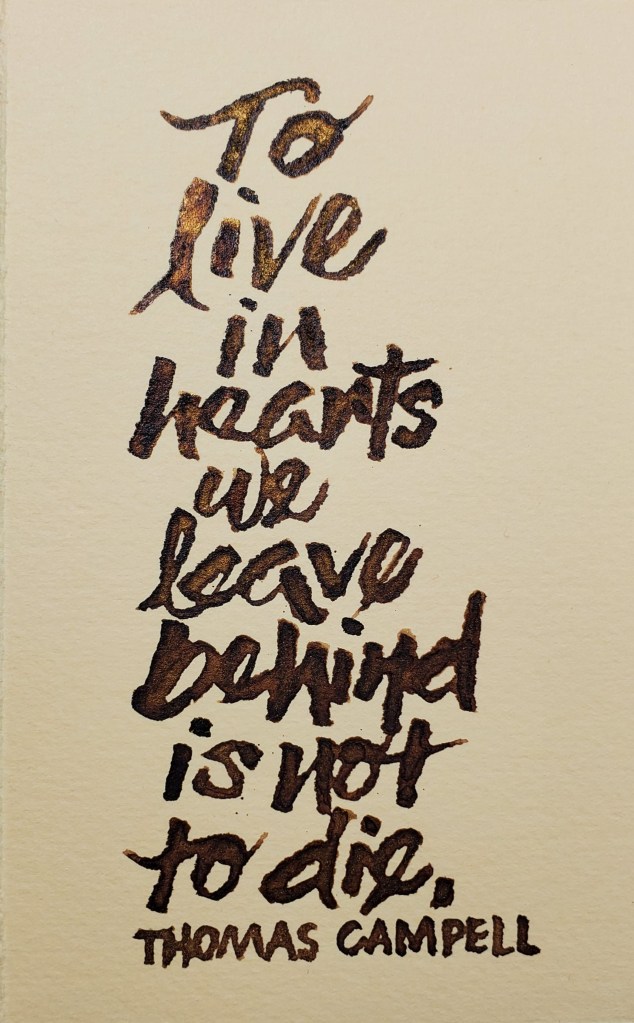 To
live
in
hearts
we
leave
behind
is not
to die.
THOMAS CAMPELL